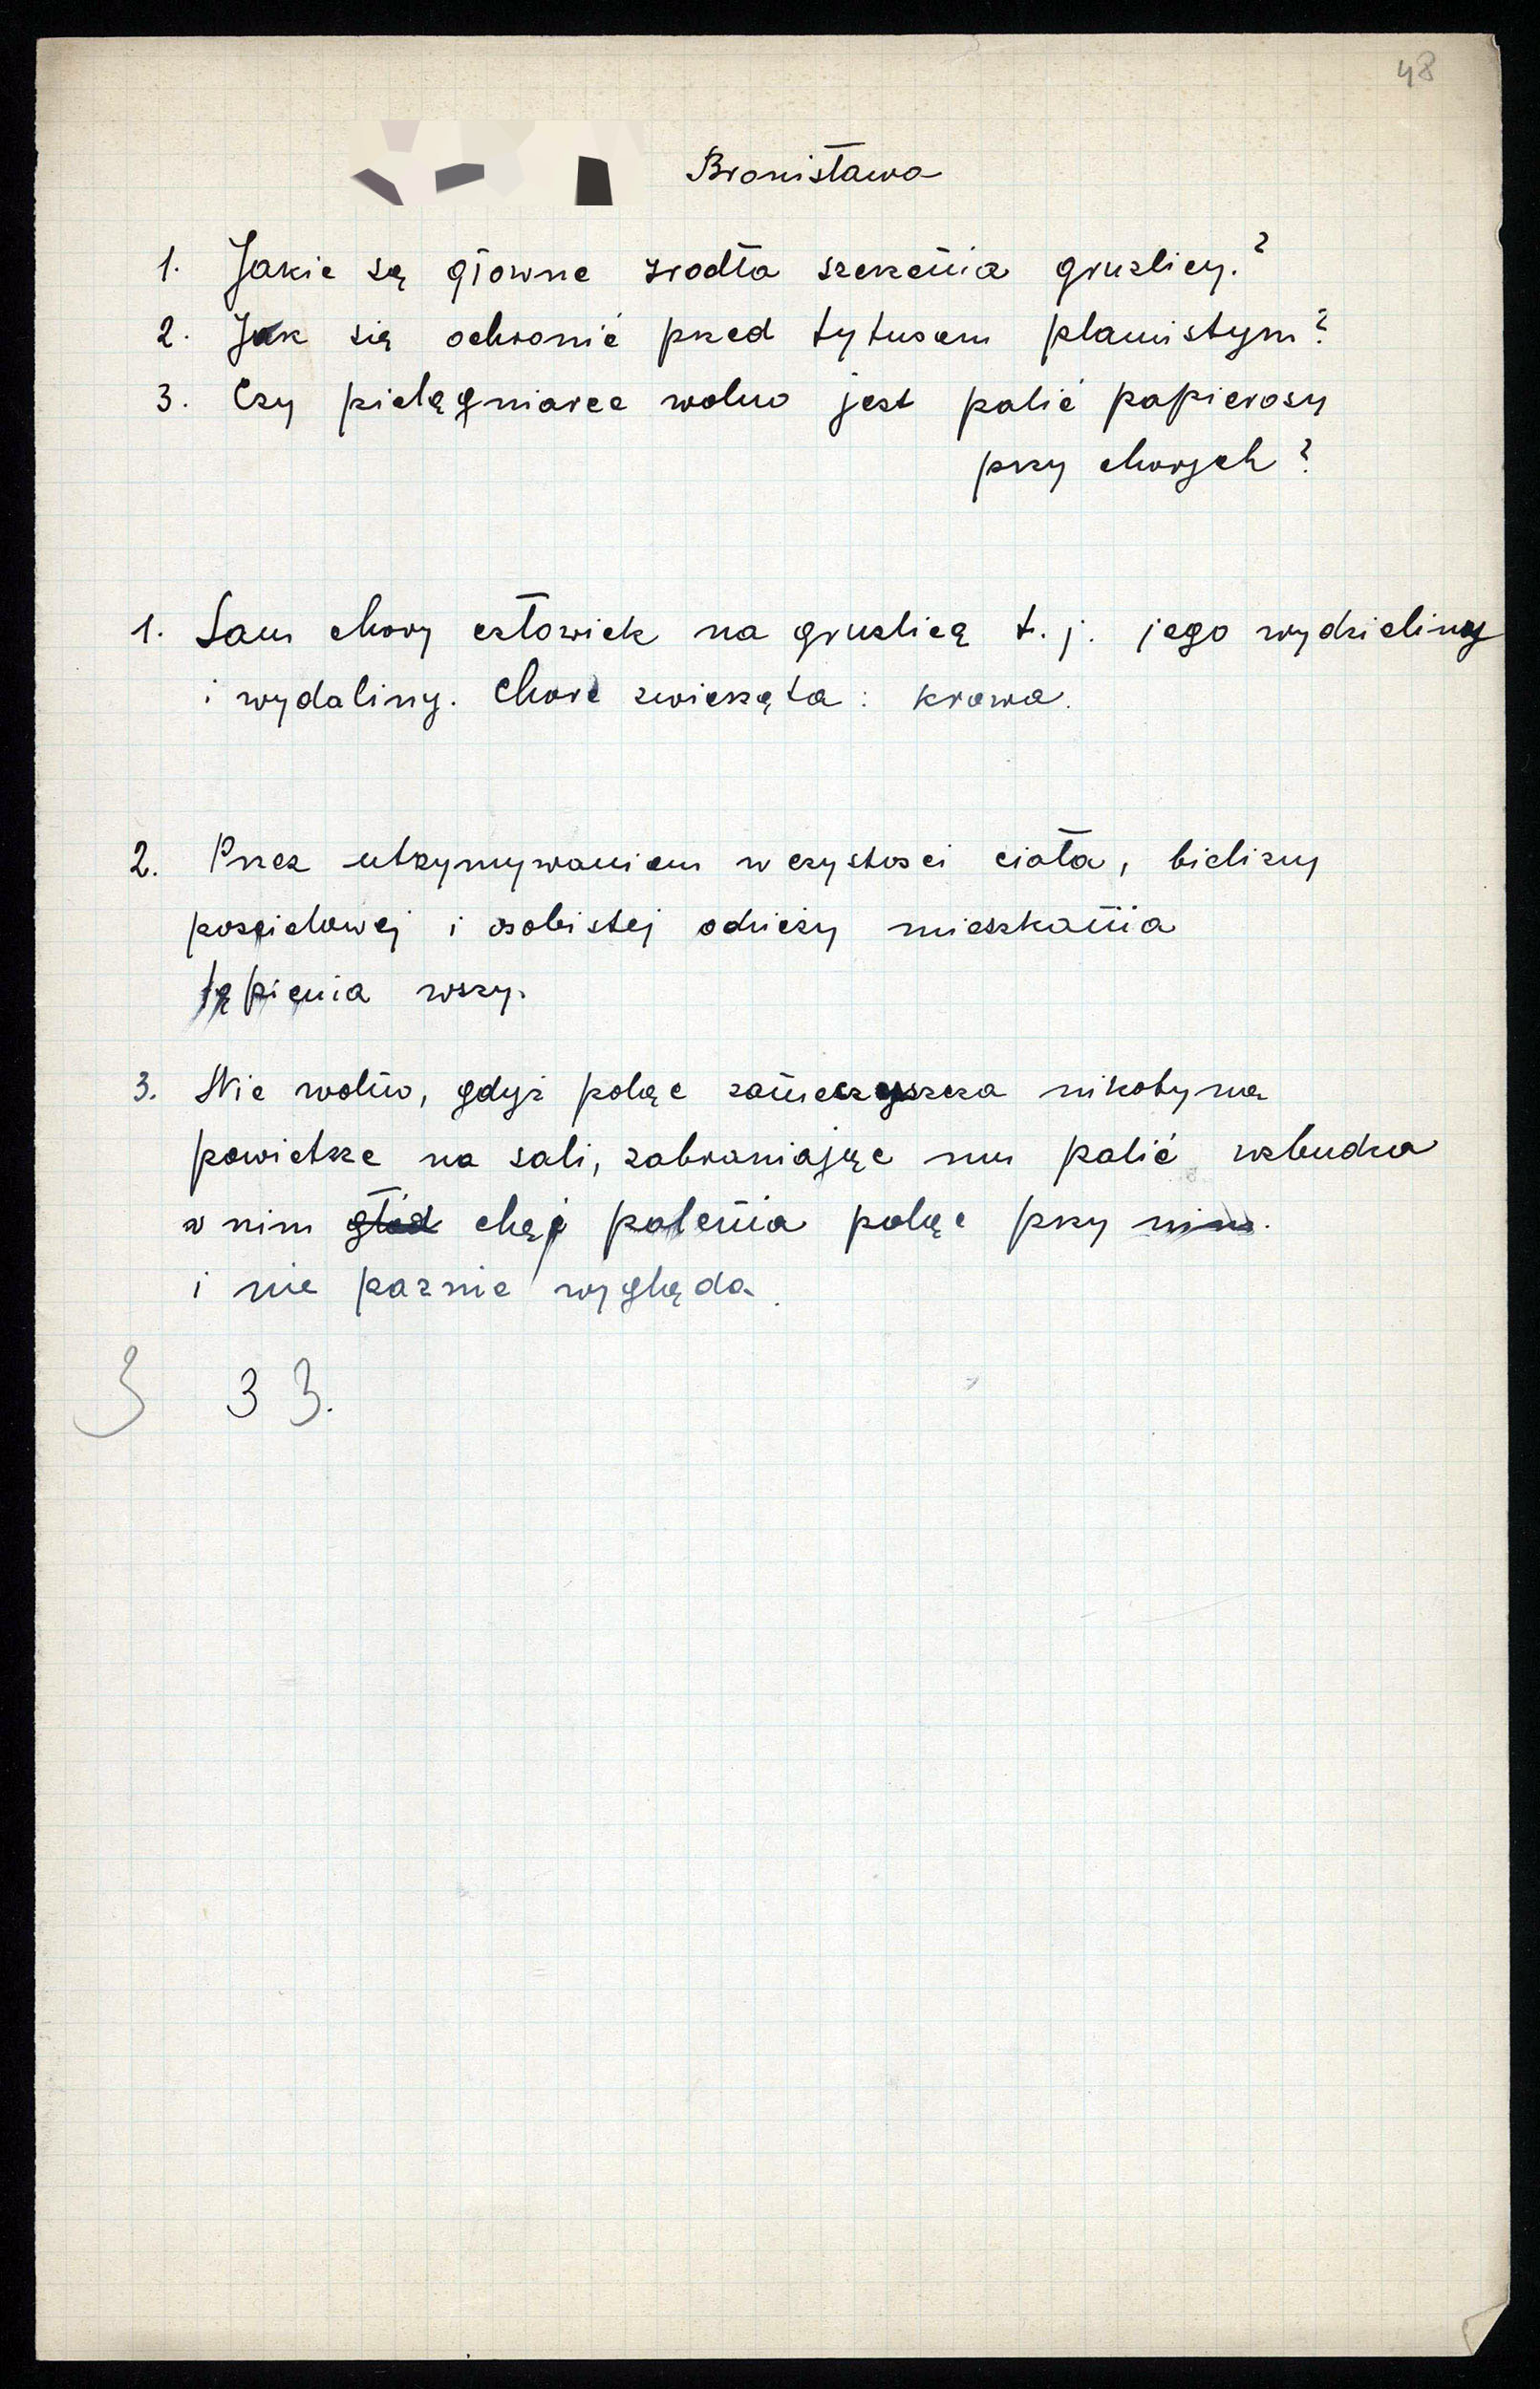 48
Bronisława
1. Jakie są głowne zrodła szerzenia gruzlicy.?
2. Jak się ochronić przed tyfusem plamistym?
3. Czy pielęgniarce wolno jest palić papierosy
przy chorych?
1. Sam chory człowiek na gruzlicę t.j. jego wydzieliny
i wydaliny. Chore zwierzęta: krowa.
2. Przez utrzymywaniem w czystosci ciała, bielizny
poscielowej i osobistej odzieży mieszkania
tępienia wszy.
3. Nie wolno, gdyż paląc zanieczyszcza nikotyną
powietrze na sali, zabraniając mu palić wzbudza
w nim głód chęć palenia paląc przy nim.
i nie pażnie wygląda.
3 3 3.